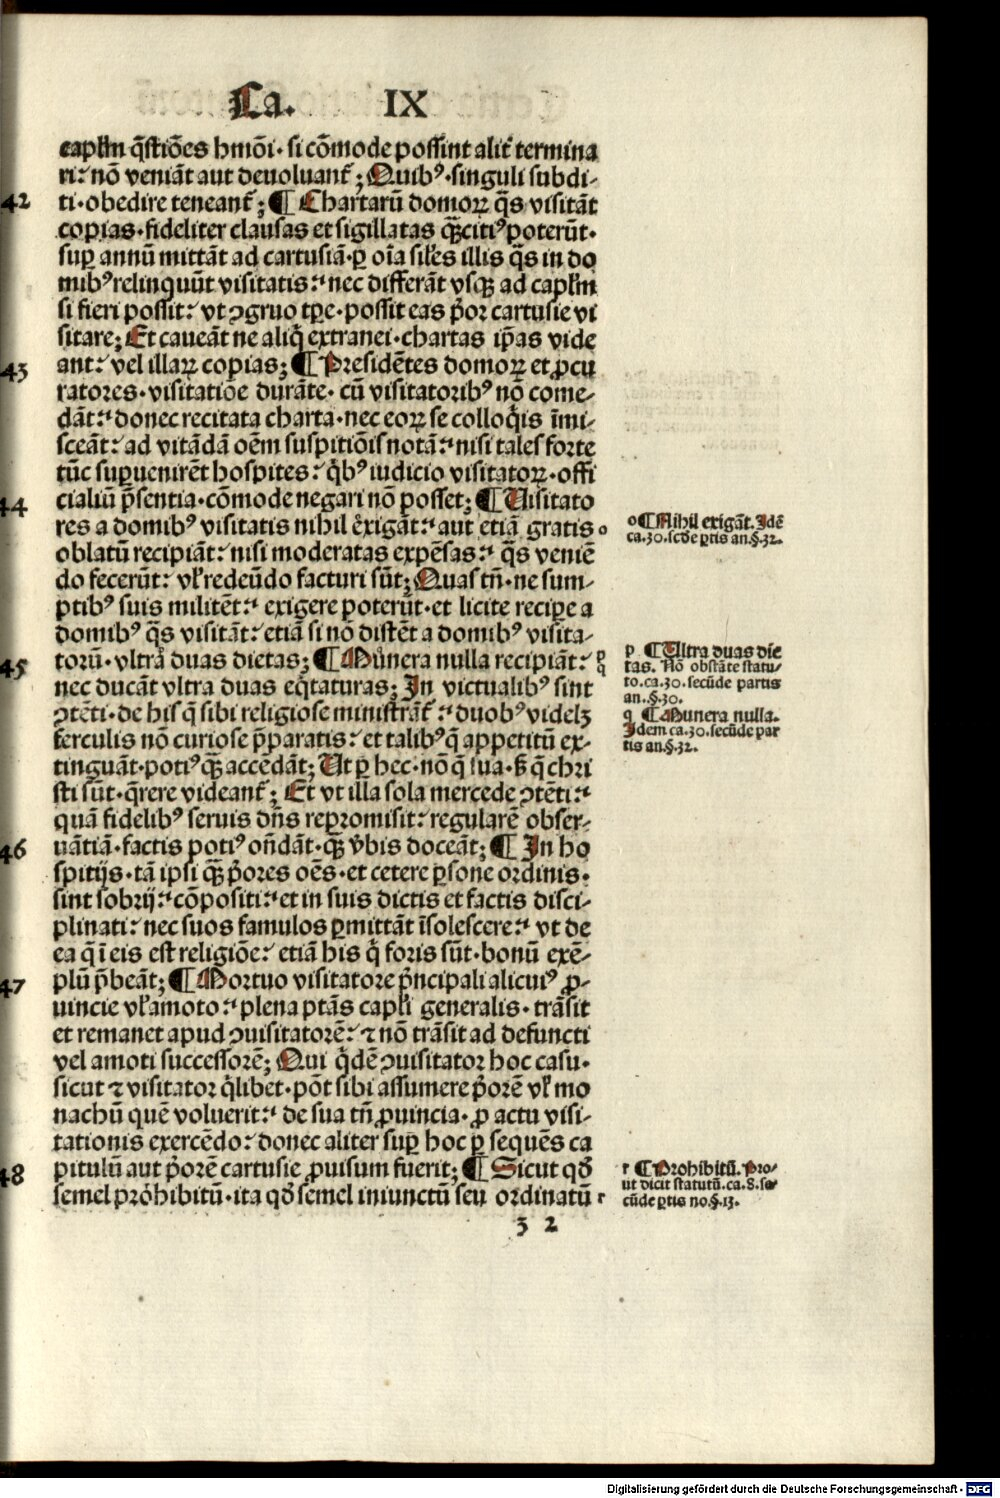 Ca. IX
caplm q̄stiōes hmōi· si cōmode possint alit᷑ termina
ri:᷑ nō veniāt aut deuoluant᷑; Quibꝰ·singuli subdi-
42 ti·obedire teneant᷑; ¶ Chartarū domoꝝ q̄s visitāt
copias·fideliter clausas et sigillatas q̄ꝫcitiꝰ poterūt·
suꝑ annū mittāt ad cartusiā·ꝑ oīa sil'es illis q̄s in do
mibꝰ relinquūt visitatis:᷑ nec differāt vsqꝫ ad caplm
si fieri possit:᷑ vt ꝯgruo tꝑe·possit eas p̄or cartusie vi
sitare; Et caueāt ne aliq̄ extranei·chartas ip̄as vide
43 ant:᷑ vel illaꝝ copias; ¶ Presidētes domoꝝ et ꝓcu
ratores·visitatiōe durāte·cū visitatoribꝰ nō come-
dāt:᷑ donec recitata charta·nec eoꝝ se colloq̄is īmi-
sceāt:᷑ ad vitādā oēm suspitiōis notā:᷑ nisi tales forte
tūc suꝑuenirēt hospites:᷑ q̄bꝰ iudicio visitatoꝝ·offi
44 cialiū p̄sentia·cōmode negari nō posset; ¶ Uisitato
res a domibꝰ visitatis nihil exigāt:᷑ aut etiā gratis o
oblatū recipiāt:᷑ nisi moderatas expēsas:᷑ q̄s veniē
do fecerūt:᷑ vl' redeūdo facturi sūt; Quas tn̄·ne sum-
ptibꝰ suis militēt:᷑ exigere poterūt·et licite reciꝑe a
domibꝰ q̄s visitāt:᷑ etiā si nō distēt a domibꝰ visita-
45 torū·vltra duas dietas; ¶ Munera nulla recipiāt:᷑ p q
nec ducāt vltra duas eq̄taturas; In victualibꝰ sint
ꝯtēti·de his q̄ sibi religiose ministrāt᷑:᷑ duobꝰ videlꝫ
ferculis nō curiose p̄paratis:᷑ et talibꝰ q̄ appetitū ex-
tinguāt·potiꝰ q̄ꝫ accēdāt; Ut ꝑ hec·nō q̄ sua·s̄ q̄ chri
sti sūt·q̄rere videant᷑; Et vt illa sola mercede ꝯtēti:᷑
quā fidelibꝰ seruis dn̄s repromisit:᷑ regularē obser-
46 uātiā·factis potiꝰ on̄dāt·q̄ꝫ v̄bis doceāt; ¶ In ho
spitijs·tā ipsi q̄ꝫ p̄ores oēs·et cetere ꝑsone ordinis·
sint sobrij:᷑ cōpositi:᷑ et in suis dictis et factis disci-
plinati:᷑ nec suos famulos ꝑmittāt īsolescere:᷑ vt de
ea q̄ ī eis est religiōe:᷑ etiā his q̄ foris sūt·bonū exē-
47 plū p̄beāt; ¶ Mortuo visitatore p̄ncipali alicuiꝰ ꝓ-
uincie vl' amoto:᷑ plena ptās capl'i generalis·trāsit
et remanet apud ꝯuisitatorē:᷑ ⁊ nō trāsit ad defuncti
vel amoti successorē; Qui q̄dē ꝯuisitator hoc casu·
sicut ⁊ visitator q̄libet·pōt sibi assumere p̄orē vl' mo
nachū quē voluerit:᷑ de sua tn̄ ꝓuincia·ꝓ actu visi-
tationis exercēdo:᷑ donec aliter suꝑ hoc ꝑ sequēs ca
48 pitulū aut p̄orē cartusie ꝓuisum fuerit; ¶ Sicut qđ
semel prohibitū·ita qđ semel iniunctū seu ordinatū r
3 2
o ¶ Nihil exigāt. Idē
ca.30.scd'e ꝑtis an.§.32.
p ¶ Ultra duas die
tas. Nō obstāte statu-
to.ca.30.secūde partis
an.§.30.
q ¶ Munera nulla.
Idem ca.30.secūde par
tis an.§.32.
r ¶ Prohibitū. Pro-
ut dicit statutū.ca.8.se-
cūde ꝑtis no.§.13.
Digitalisierung gefördert durch die Deutsche Forschungsgemeinschaft - DFG